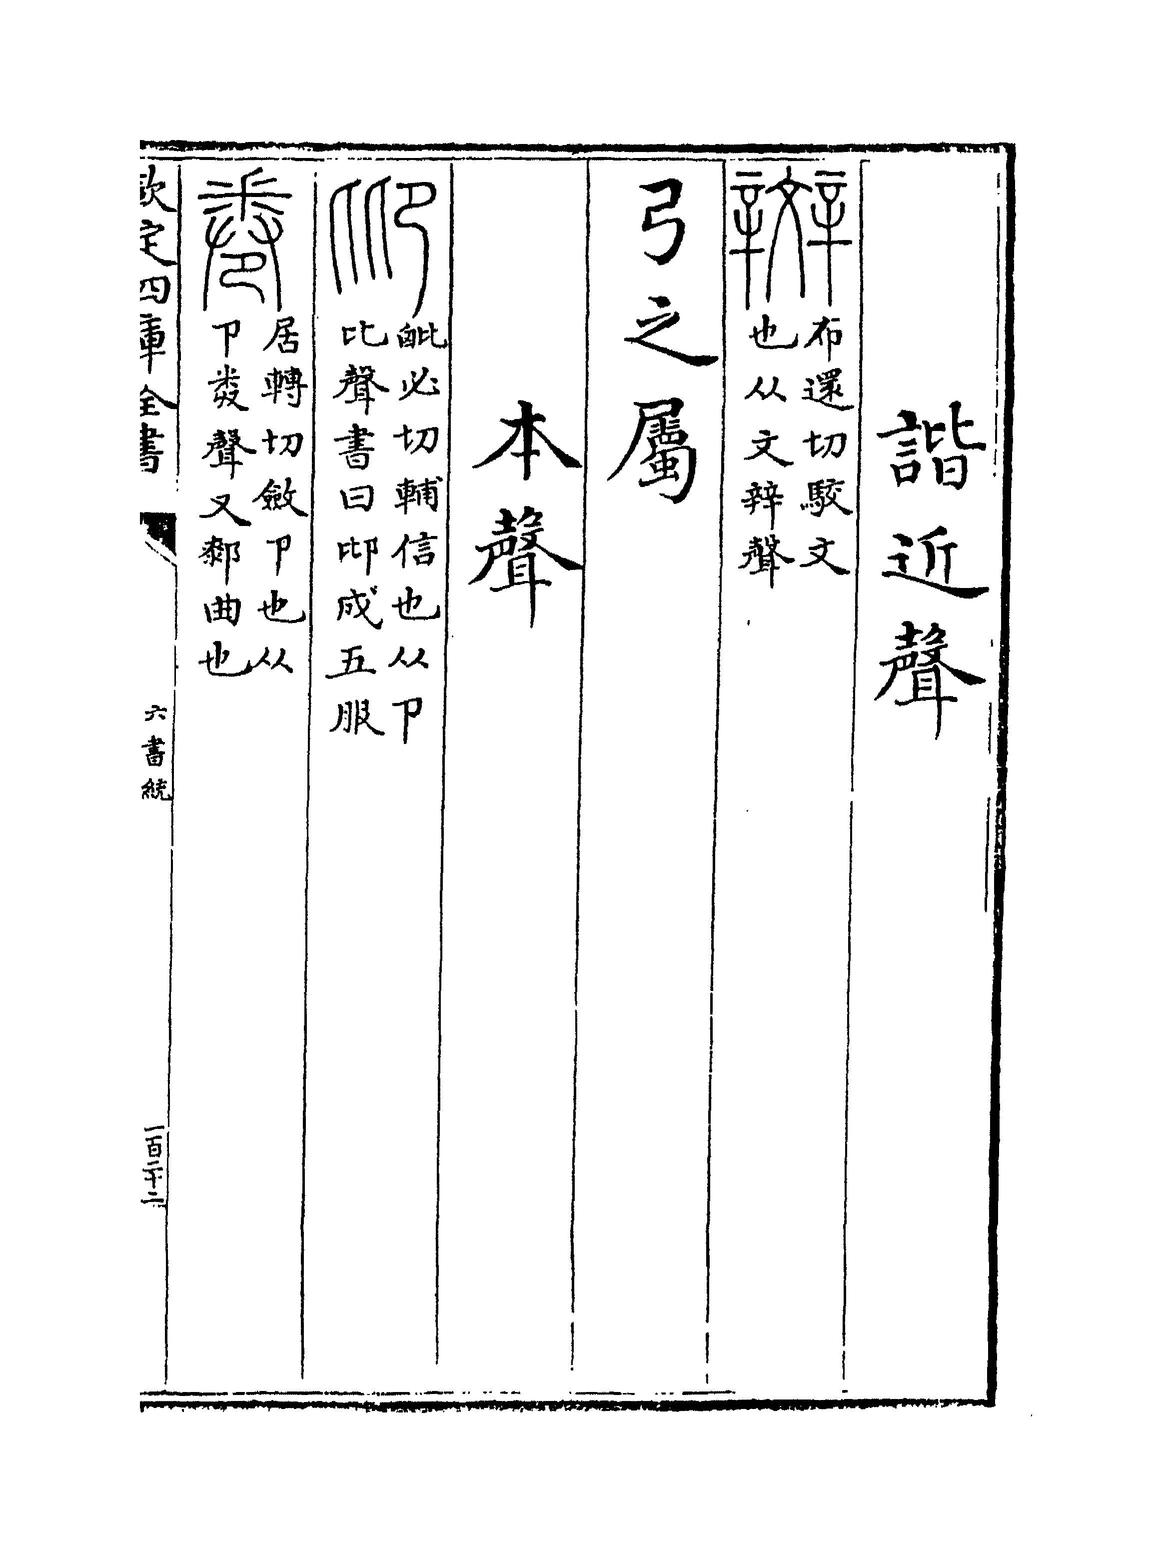 諧近聲
辬
布還切駮文
也从文辡聲
弓之屬
本聲
毗必切輔信也从卪
比聲書曰𠨒成五服
居轉切斂卪也从
卪𢍏聲又厀曲也
欽定四庫全書
六書統
一百二十二